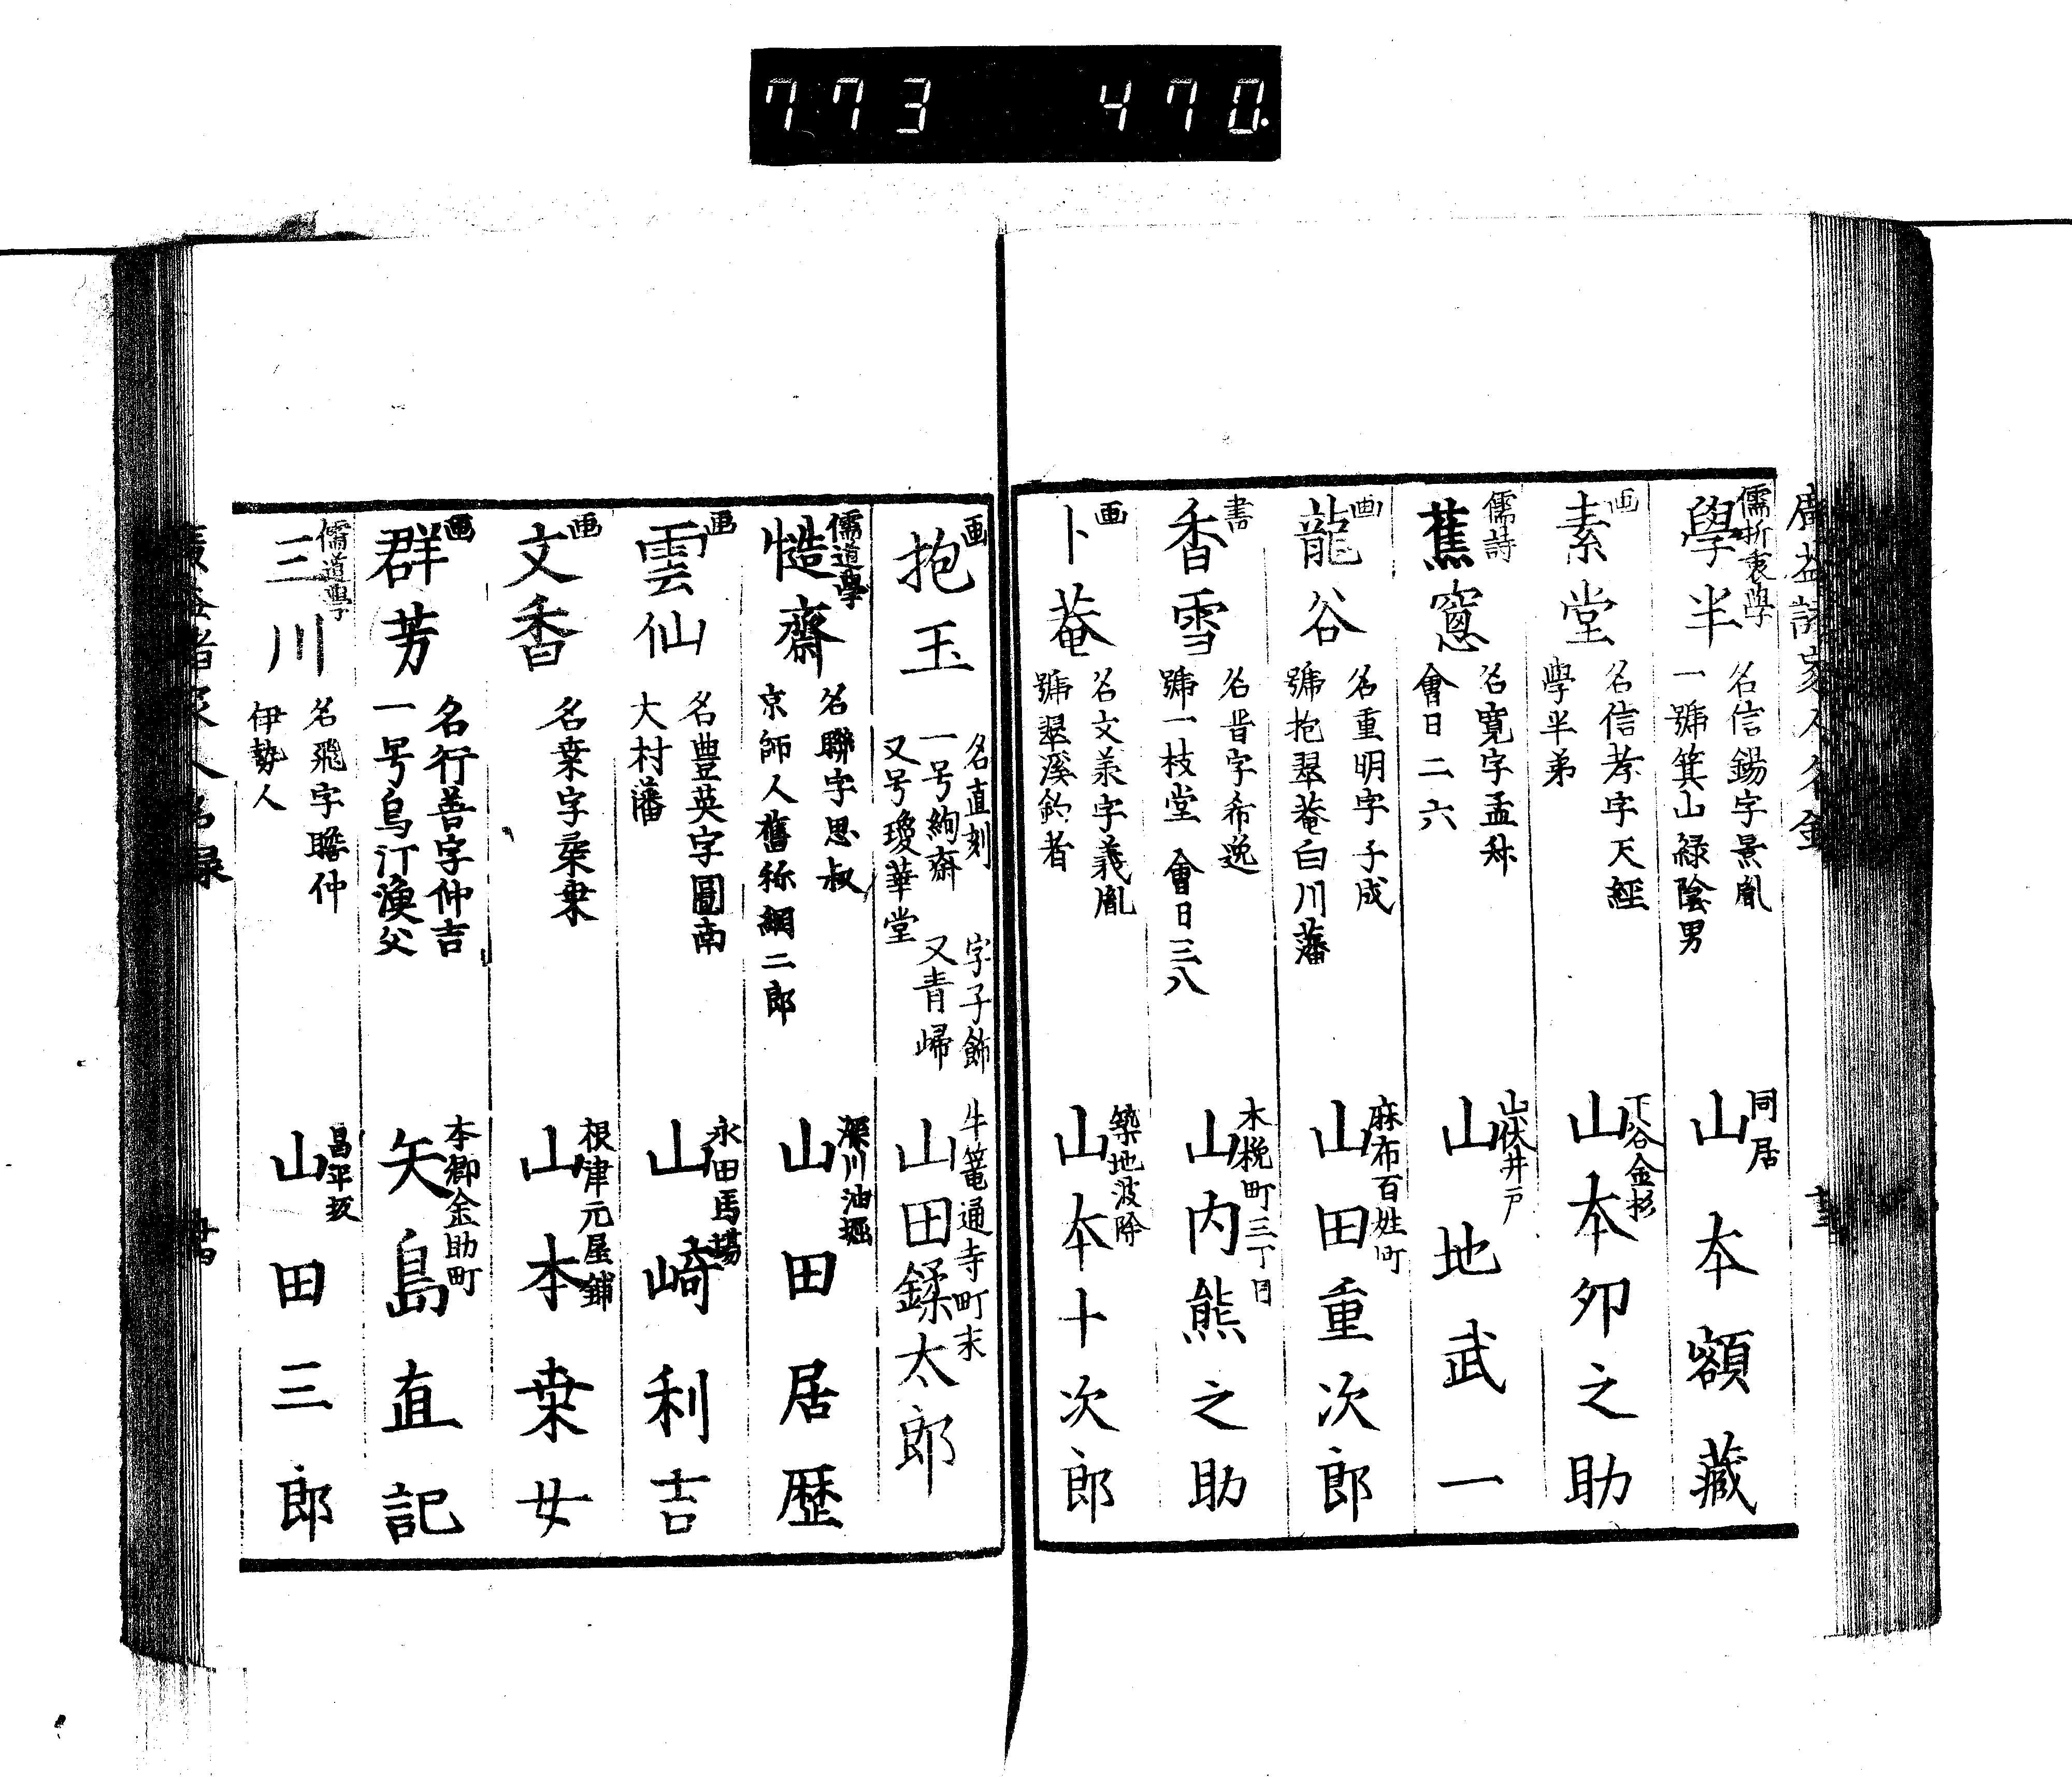 773 470.
廣益諸家人名録
儒折衷學
學半
名信鍚字景胤
一號箕山緑陰男
同居
山本額藏
画
素堂
名信孝字天經
學半弟
下谷金杉
山本卯之助
儒詩
蕉窻
名寛字孟舛
會日二六
山伏井戸
山地武一
画
龍谷
名重明字子成
號抱翠菴白川藩
麻布百姓町
山田重次郎
書
香雪
名晋字希逸
號一枝堂 會日三八
木挽町三丁目
山内熊之助
画
卜菴
名文羕字義胤
號翠溪釣者
築地波除
山本十次郎
画
抱玉
名直刻 字子飾
一号絢齋 又青歸
又号瓊華堂
牛篭通寺町末
山田鍒太郎
儒道學
慥齋
名聯字思叔
京師人舊称綱二郎
深川油堀
山田居歴
画
雲仙
名豊英字圖南
大村藩
永田馬場
山崎利吉
画
文香
名桒字桒桒
根津元屋鋪
山本桒女
画
群芳
名行善字仲吉
一号烏汀漁父
本郷金助町
矢島直記
儒道學
三川
名飛字聸仲
伊勢人
昌平坂
山田三郎
廣益諸家人名録